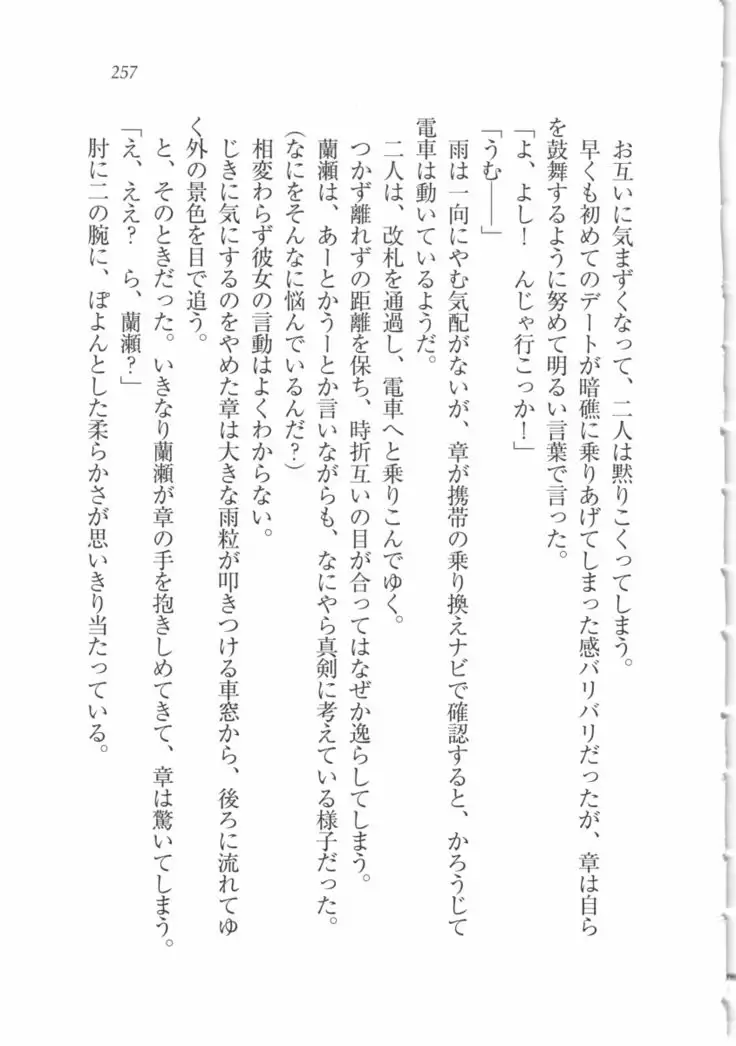 257
お互いに気まずくなって、二人は黙りこくってしまう。
早くも初めてのデートが暗礁に乗りあげてしまった感バリバリだったが、章は自ら
を鼓舞するように努めて明るい言葉で言った。
「よ、よし！　んじゃ行こっか！」
「うむ――」
雨は一向にやむ気配がないが、章が携帯の乗り換えナビで確認すると、かろうじて
電車は動いているようだ。
二人は、改札を通過し、電車へと乗りこんでゆく。
つかず離れずの距離を保ち、時折互いの目が合ってはなぜか逸らしてしまう。
蘭瀬は、あーとかうーとか言いながらも、なにやら真剣に考えている様子だった。
(なにをそんなに悩んでいるんだ？)
相変わらず彼女の言動はよくわからない。
じきに気にするのをやめた章は大きな雨粒が叩きつける車窓から、後ろに流れてゆ
く外の景色を目で追う。
と、そのときだった。いきなり蘭瀬が章の手を抱きしめてきて、章は驚いてしまう。
「え、ええ？　ら、蘭瀬？」
肘に二の腕に、ぽよんとした柔らかさが思いきり当たっている。